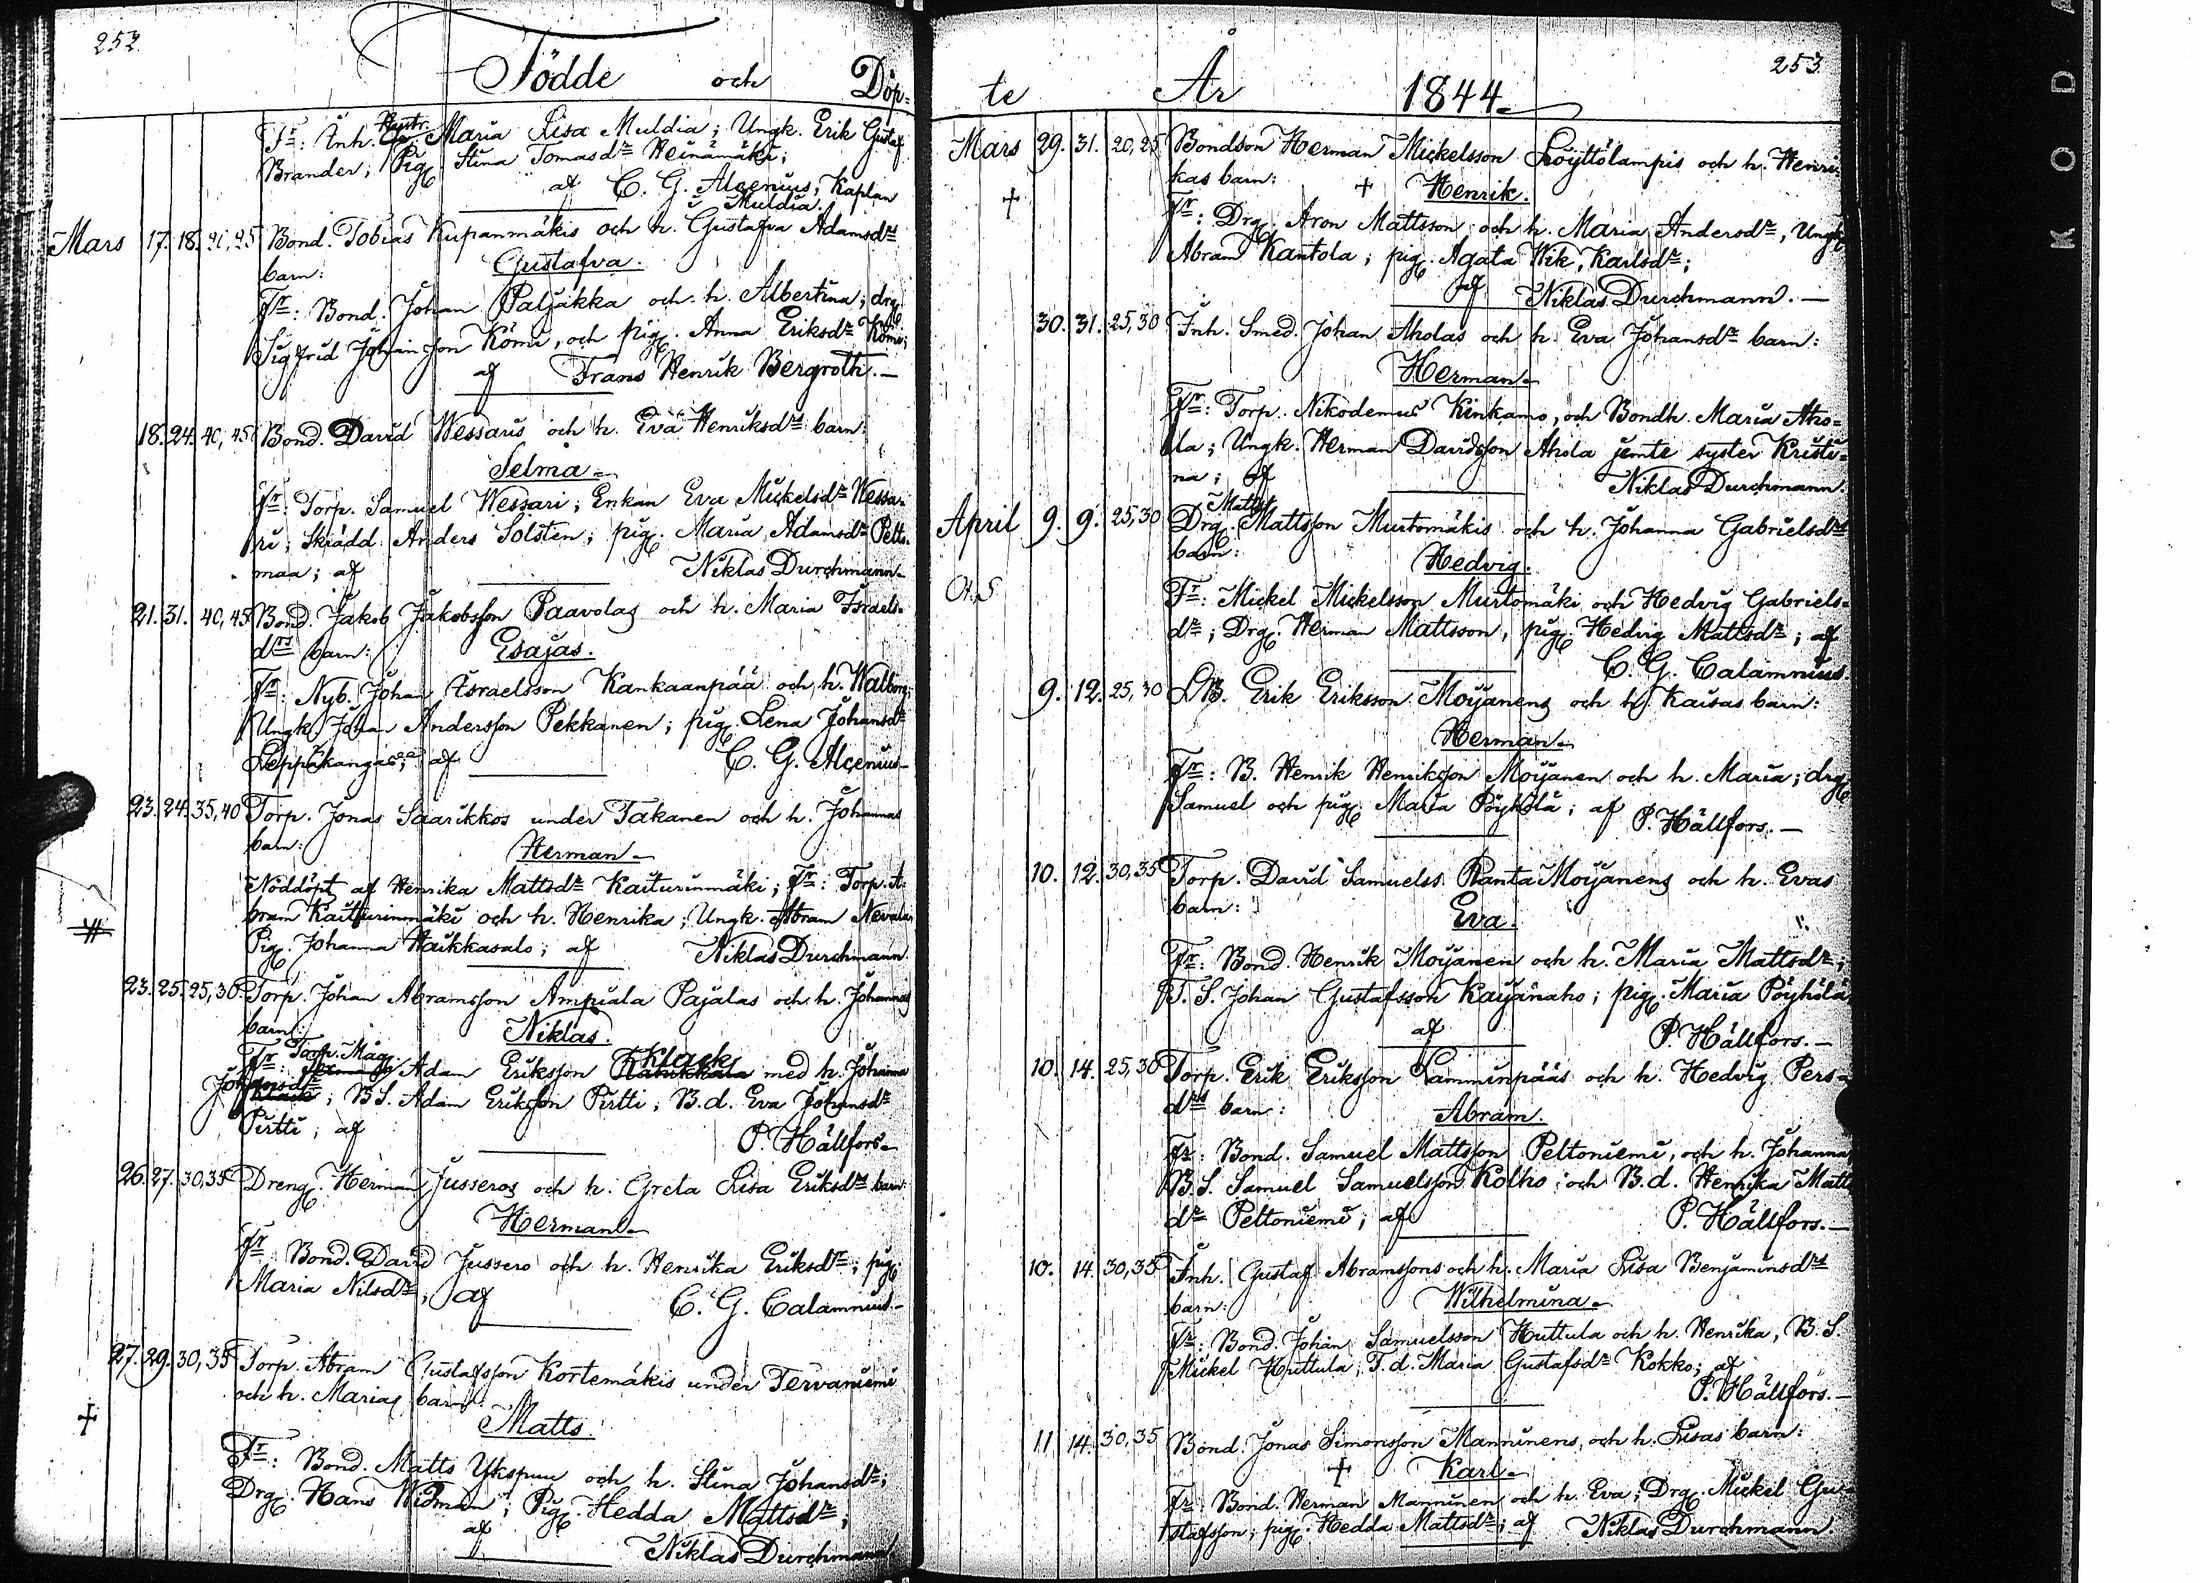 252
Födde och Döp-
Fr: Inh. Hustr. Maria Lisa Muldia; Ungk. Erik Gustaf
Brander; Pig. Stina Tomasdr Heinämäki;
af C. G. Alcenius, Kaplan
i Muldia.
Mars 17. 18. 20,25 Bond. Tobias Kupanmäkis och h. Gustafva Adamsdrs
barn: Gustafva.
Fr: Bond. Johan Paljakka och h. Albertina; drg.
Sigfrid Johansson Kömi, och pig. Anna Eriksdr Kömi;
af Frans Henrik Bergroth.—
18. 24. 40,45 Bond. David Wessaris och h. Eva Henriksdrs barn:
Selma
Fr: Torp. Samuel Wessari; Enkan Eva Mickelsdr Wessa-
ri; Skrädd. Anders Solsten; pig. Maria Adamsdr Pelto-
maa; af Niklas Durchmann
21. 31. 40,45 Bond. Jakob Jakobsson Paavolas och h. Maria Israels-
drs barn: Esajas.
Fr: Nyb. Johan Israelsson Kankaanpää och h. Walborg;
Ungk. Johan Andersson Pekkanen; pig. Lena Johansdr
Leppäkangas; af C. G. Alcenius
23. 24. 35,40 Torp. Jonas Saarikkos under Takanen och h. Johannas
barn: Herman
Nöddöpt af Henrika Mattsdr Kaiturinmäki; Fr: Torp. A-
bram Kaiturinmäki och h. Henrika; Ungk. Abram Nevala
Pig. Johanna Haikkasalo; af Niklas Durchmann.
23. 25. 25,30 Torp. Johan Abramsson Ampiala Pajalas och h. Johannas
barn: Niklas.
Torp. Måg.
Fr: Adam Eriksson Klack med h. Johanna
Johansdr; B.S. Adam Eriksson Pirtti; B.d. Eva Johansdr
Pirtti; af P. Hällfors
26. 27. 30,35 Dreng. Herman Jusseros och h. Greta Lisa Eriksdrs barn
Herman
Fr: Bond. David Jussero och h. Henrika Eriksdr; pig.
Maria Nilsdr; af C. G. Calamnius
27. 29. 30,35 Torp. Abram Gustafsson Kortemäkis under Tervaniemi
och h. Marias barn:
+ Matts.
Fr: Bond. Matts Ykspuu och h. Stina Johansdr;
Drg. Hans Widman; Pig. Hedda Mattsdr;
af Niklas Durchmann
253
te År 1844
Mars 29. 31. 20,25 Bondson Herman Mickelsson Löyttölampis och h. Henri-
kas barn: + Henrik.
+ Fr: Drg. Aron Mattsson och h. Maria Andersdr, Ungk.
Abram Kantola; pig. Agata Wik, Karlsdr;
af Niklas Durchmann.—
30. 31. 25,30 Inh. Smed. Johan Aholas och h. Eva Johansdr barn:
Herman
Fr: Torp. Nikodemus Kinkamo, och Bondh. Maria Aho-
la; Ungk. Herman Davidsson Ahola jemte syster Kristi-
na; af Niklas Durchmann.
April 9. 9. 25,30 Drg. Matts Mattsson Murtomäkis och h. Johanna Gabrielsdrs
barn: Hedvig.
Fr: Mickel Mickelsson Murtomäki och Hedvig Gabriels-
dr; Drg. Herman Mattsson, pig. Hedvig Mattsdr; af
C. G. Calamnius.
9. 12. 25,30 Erik Eriksson Moijanens och h. Kaisas barn:
Herman
Fr: B. Henrik Henriksson Moijanen och h. Maria; drg.
Samuel och pig. Maria Pöyhölä; af P. Hällfors.—
10. 12. 30,35 Torp. David Samuelss. Ranta Moijanens och h. Evas
barn: Eva.
Fr: Bond. Henrik Moijanen och h. Maria Mattsdr;
T. S. Johan Gustafsson Kaijanaho; pig. Maria Pöyhölä
af P. Hällfors.—
10. 14. 25,30 Torp. Erik Eriksson Lamminpääs och h. Hedvig Pers-
drs barn: Abram.
Fr: Bond. Samuel Mattsson Peltoniemi, och h. Johanna
B.S. Samuel Samuelsson Kolho och B.d. Henrika Matts
dr Peltoniemi; af P. Hällfors.—
10. 14. 30,35 Inh. Gustaf Abramssons och h. Maria Lisa Benjaminsdrs
barn: Wilhelmina
Fr: Bond. Johan Samuelsson Huttula och h. Henrika, B.S.
Mickel Huttula; T.d. Maria Gustafsdr Kokko; af
P. Hällfors.—
11. 14. 30,35 Bond. Jonas Simonsson Manninens, och h. Lisas barn:
+ Karl
Fr: Bond. Herman Manninen och h. Eva; Drg. Mickel Gu-
stafsson; pig. Hedda Mattsdr; af Niklas Durchmann.
KODA